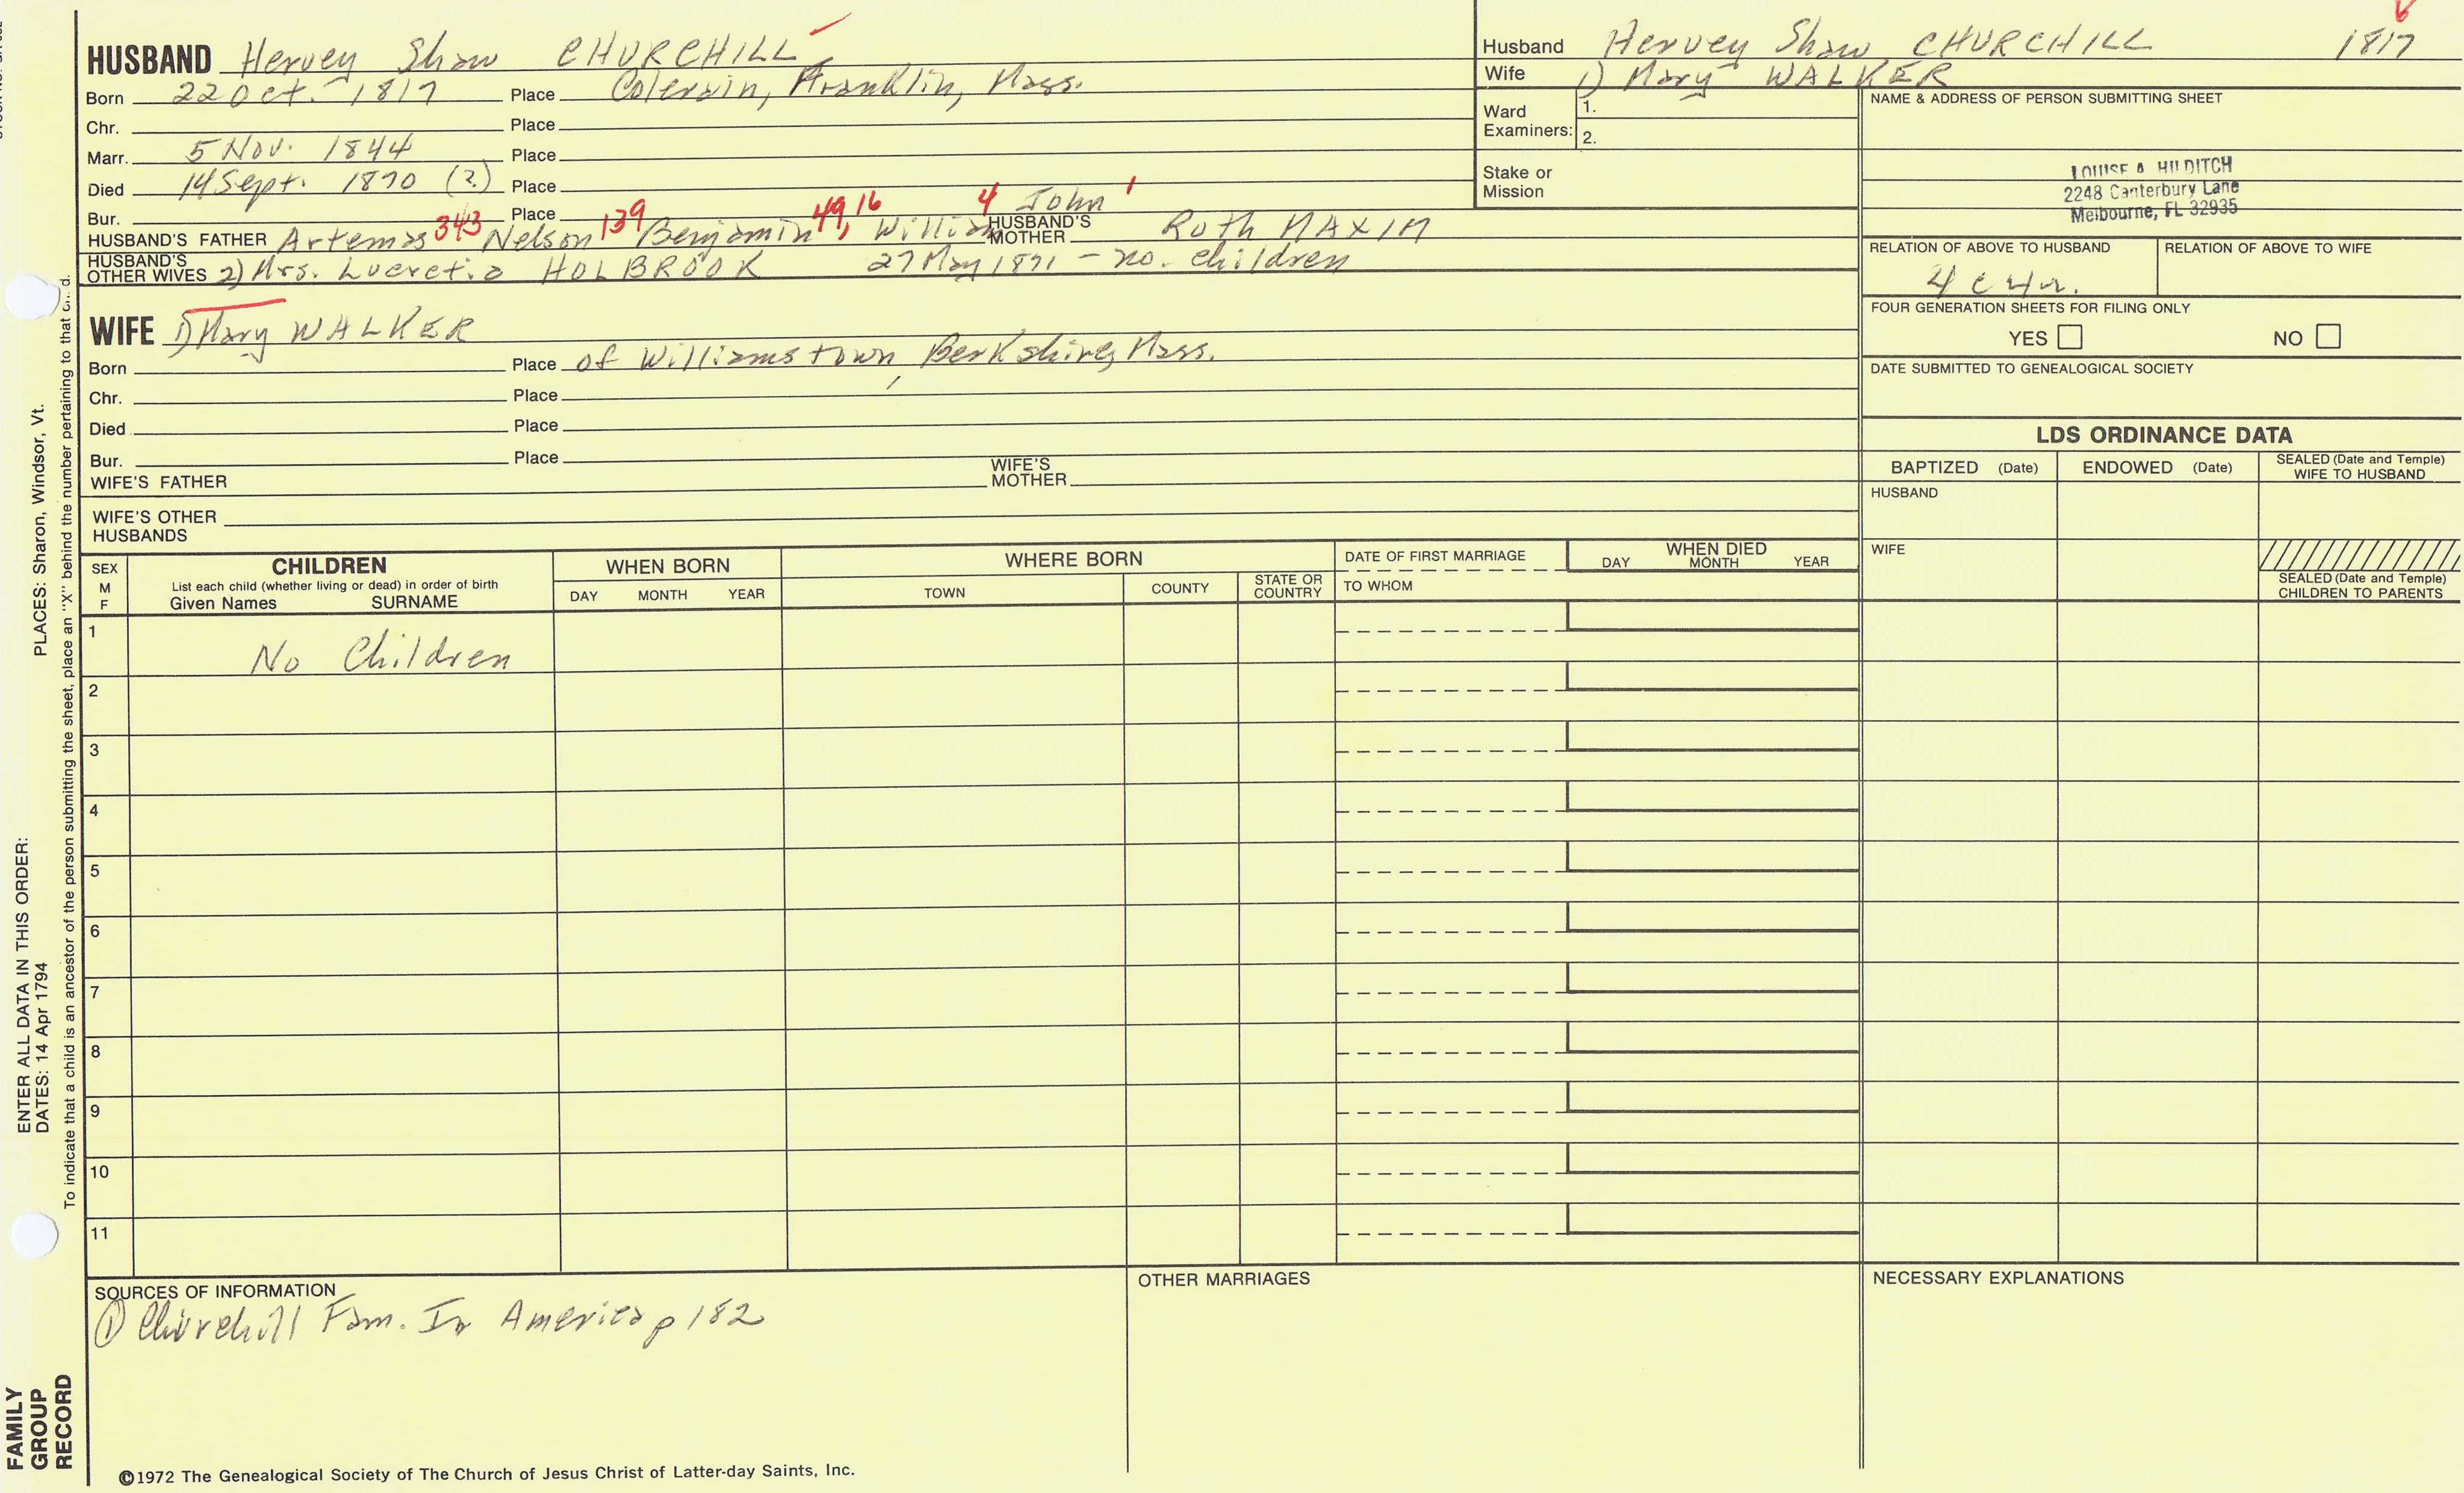 HUSBAND Hervey Shaw CHURCHILL
Born 22 Oct. 1817 Place Colerain, Franklin, Mass.
Chr. Place
Marr. 5 Nov. 1844 Place
Died 14 Sept. 1870 (?) Place
Bur. Place
HUSBAND'S FATHER Artemas 343 Nelson 139 Benjamin 49, 16 William 4 John 1 HUSBAND'S MOTHER Ruth MAXIM
HUSBAND'S OTHER WIVES 2) Mrs. Lucretia HOLBROOK 27 May 1871 - no. children
Husband Hervey Shaw CHURCHILL 1817 6
Wife 1) Mary WALKER
Ward Examiners: 1.
2.
Stake or Mission
NAME & ADDRESS OF PERSON SUBMITTING SHEET
LOUISE A HILDITCH
2248 Canterbury Lane
Melbourne, FL 32935
RELATION OF ABOVE TO HUSBAND RELATION OF ABOVE TO WIFE
4 c 4 r.
FOUR GENERATION SHEETS FOR FILING ONLY
YES NO
DATE SUBMITTED TO GENEALOGICAL SOCIETY
WIFE 1) Mary WALKER
Born Place of Williamstown, Berkshire, Mass.
Chr. Place
Died Place
Bur. Place
WIFE'S FATHER WIFE'S MOTHER
WIFE'S OTHER HUSBANDS
LDS ORDINANCE DATA
BAPTIZED (Date) ENDOWED (Date) SEALED (Date and Temple) WIFE TO HUSBAND
HUSBAND
WIFE
SEALED (Date and Temple) CHILDREN TO PARENTS
SEX M F
CHILDREN
List each child (whether living or dead) in order of birth
Given Names SURNAME
WHEN BORN
DAY MONTH YEAR
WHERE BORN
TOWN COUNTY STATE OR COUNTRY
DATE OF FIRST MARRIAGE
TO WHOM
WHEN DIED
DAY MONTH YEAR
1 No Children
2
3
4
5
6
7
8
9
10
11
SOURCES OF INFORMATION
① Churchill Fam. In America p 182
OTHER MARRIAGES
NECESSARY EXPLANATIONS
©1972 The Genealogical Society of The Church of Jesus Christ of Latter-day Saints, Inc.
FAMILY GROUP RECORD
ENTER ALL DATA IN THIS ORDER:
DATES: 14 Apr 1794 PLACES: Sharon, Windsor, Vt.
To indicate that a child is an ancestor of the person submitting the sheet, place an "X" behind the number pertaining to that